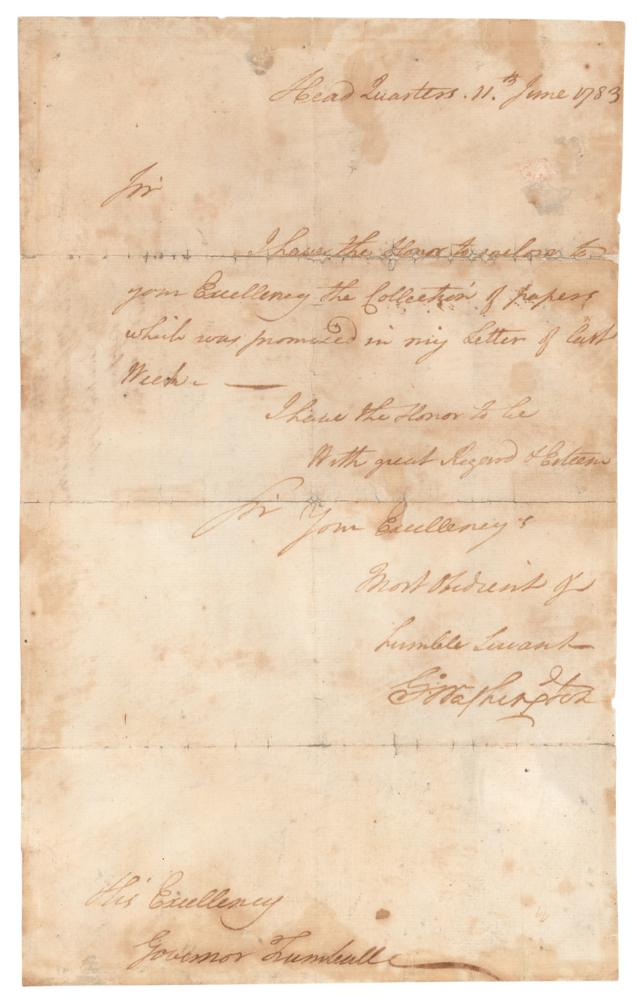 Head Quarters. 11.th June 1783
Sir
I have the Honor to inclose to
your Excellency the Collection of papers
which was promised in my Letter of last
Week.
I have the Honor to be
With great Regard & Esteem
Sir Your Excellency's
Most Obedient &
humble Servant
Go Washington
His Excellency
Governor Trumbull